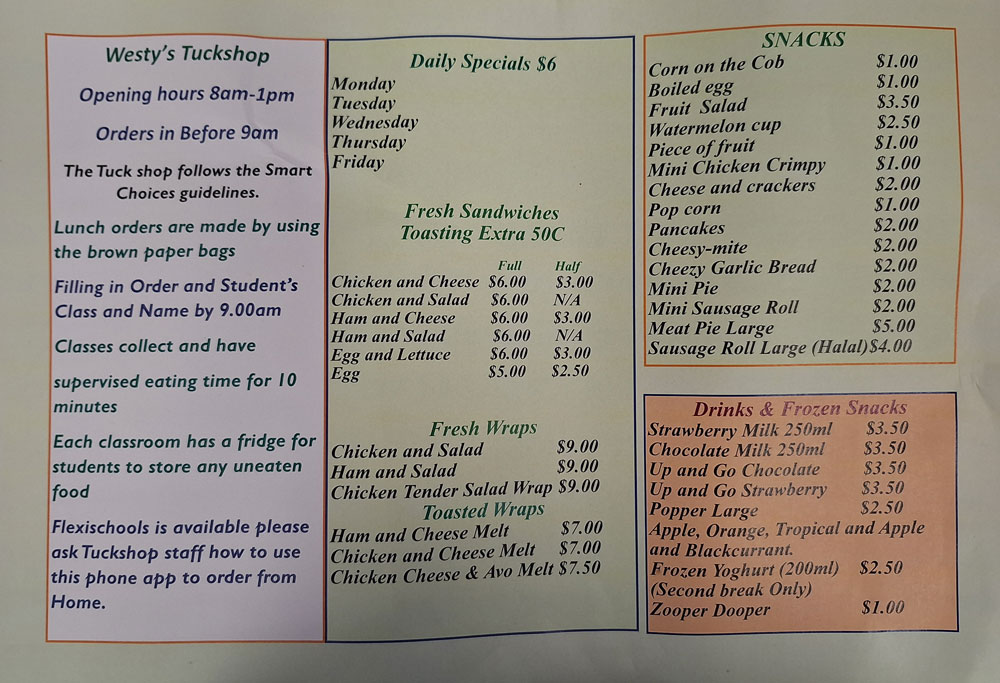 Westy's Tuckshop
Opening hours 8am-1pm
Orders in Before 9am
The Tuck shop follows the Smart
Choices guidelines.
Lunch orders are made by using
the brown paper bags
Filling in Order and Student's
Class and Name by 9.00am
Classes collect and have
supervised eating time for 10
minutes
Each classroom has a fridge for
students to store any uneaten
food
Flexischools is available please
ask Tuckshop staff how to use
this phone app to order from
Home.
Daily Specials $6
Monday
Tuesday
Wednesday
Thursday
Friday
Fresh Sandwiches
Toasting Extra 50C
Full Half
Chicken and Cheese $6.00 $3.00
Chicken and Salad $6.00 N/A
Ham and Cheese $6.00 $3.00
Ham and Salad $6.00 N/A
Egg and Lettuce $6.00 $3.00
Egg $5.00 $2.50
Fresh Wraps
Chicken and Salad $9.00
Ham and Salad $9.00
Chicken Tender Salad Wrap $9.00
Toasted Wraps
Ham and Cheese Melt $7.00
Chicken and Cheese Melt $7.00
Chicken Cheese & Avo Melt $7.50
SNACKS
Corn on the Cob $1.00
Boiled egg $1.00
Fruit Salad $3.50
Watermelon cup $2.50
Piece of fruit $1.00
Mini Chicken Crimpy $1.00
Cheese and crackers $2.00
Pop corn $1.00
Pancakes $2.00
Cheesy-mite $2.00
Cheezy Garlic Bread $2.00
Mini Pie $2.00
Mini Sausage Roll $2.00
Meat Pie Large $5.00
Sausage Roll Large (Halal) $4.00
Drinks & Frozen Snacks
Strawberry Milk 250ml $3.50
Chocolate Milk 250ml $3.50
Up and Go Chocolate $3.50
Up and Go Strawberry $3.50
Popper Large $2.50
Apple, Orange, Tropical and Apple
and Blackcurrant.
Frozen Yoghurt (200ml) $2.50
(Second break Only)
Zooper Dooper $1.00